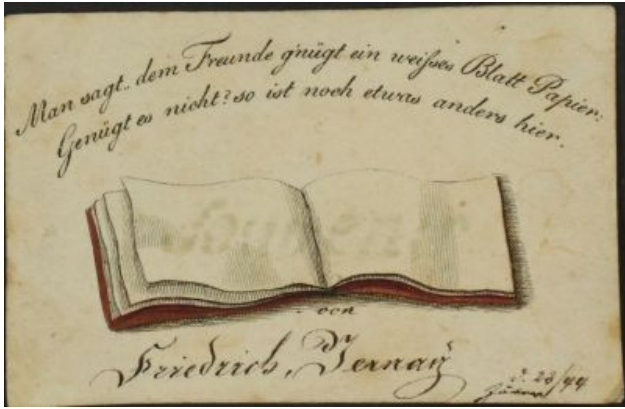 Man sagt. dem Freunde g'nügt ein weißes Blatt Papier:
Genügt es nicht? so ist noch etwas anders hier.
von
Friedrich, Jernaÿ
d. 23/44